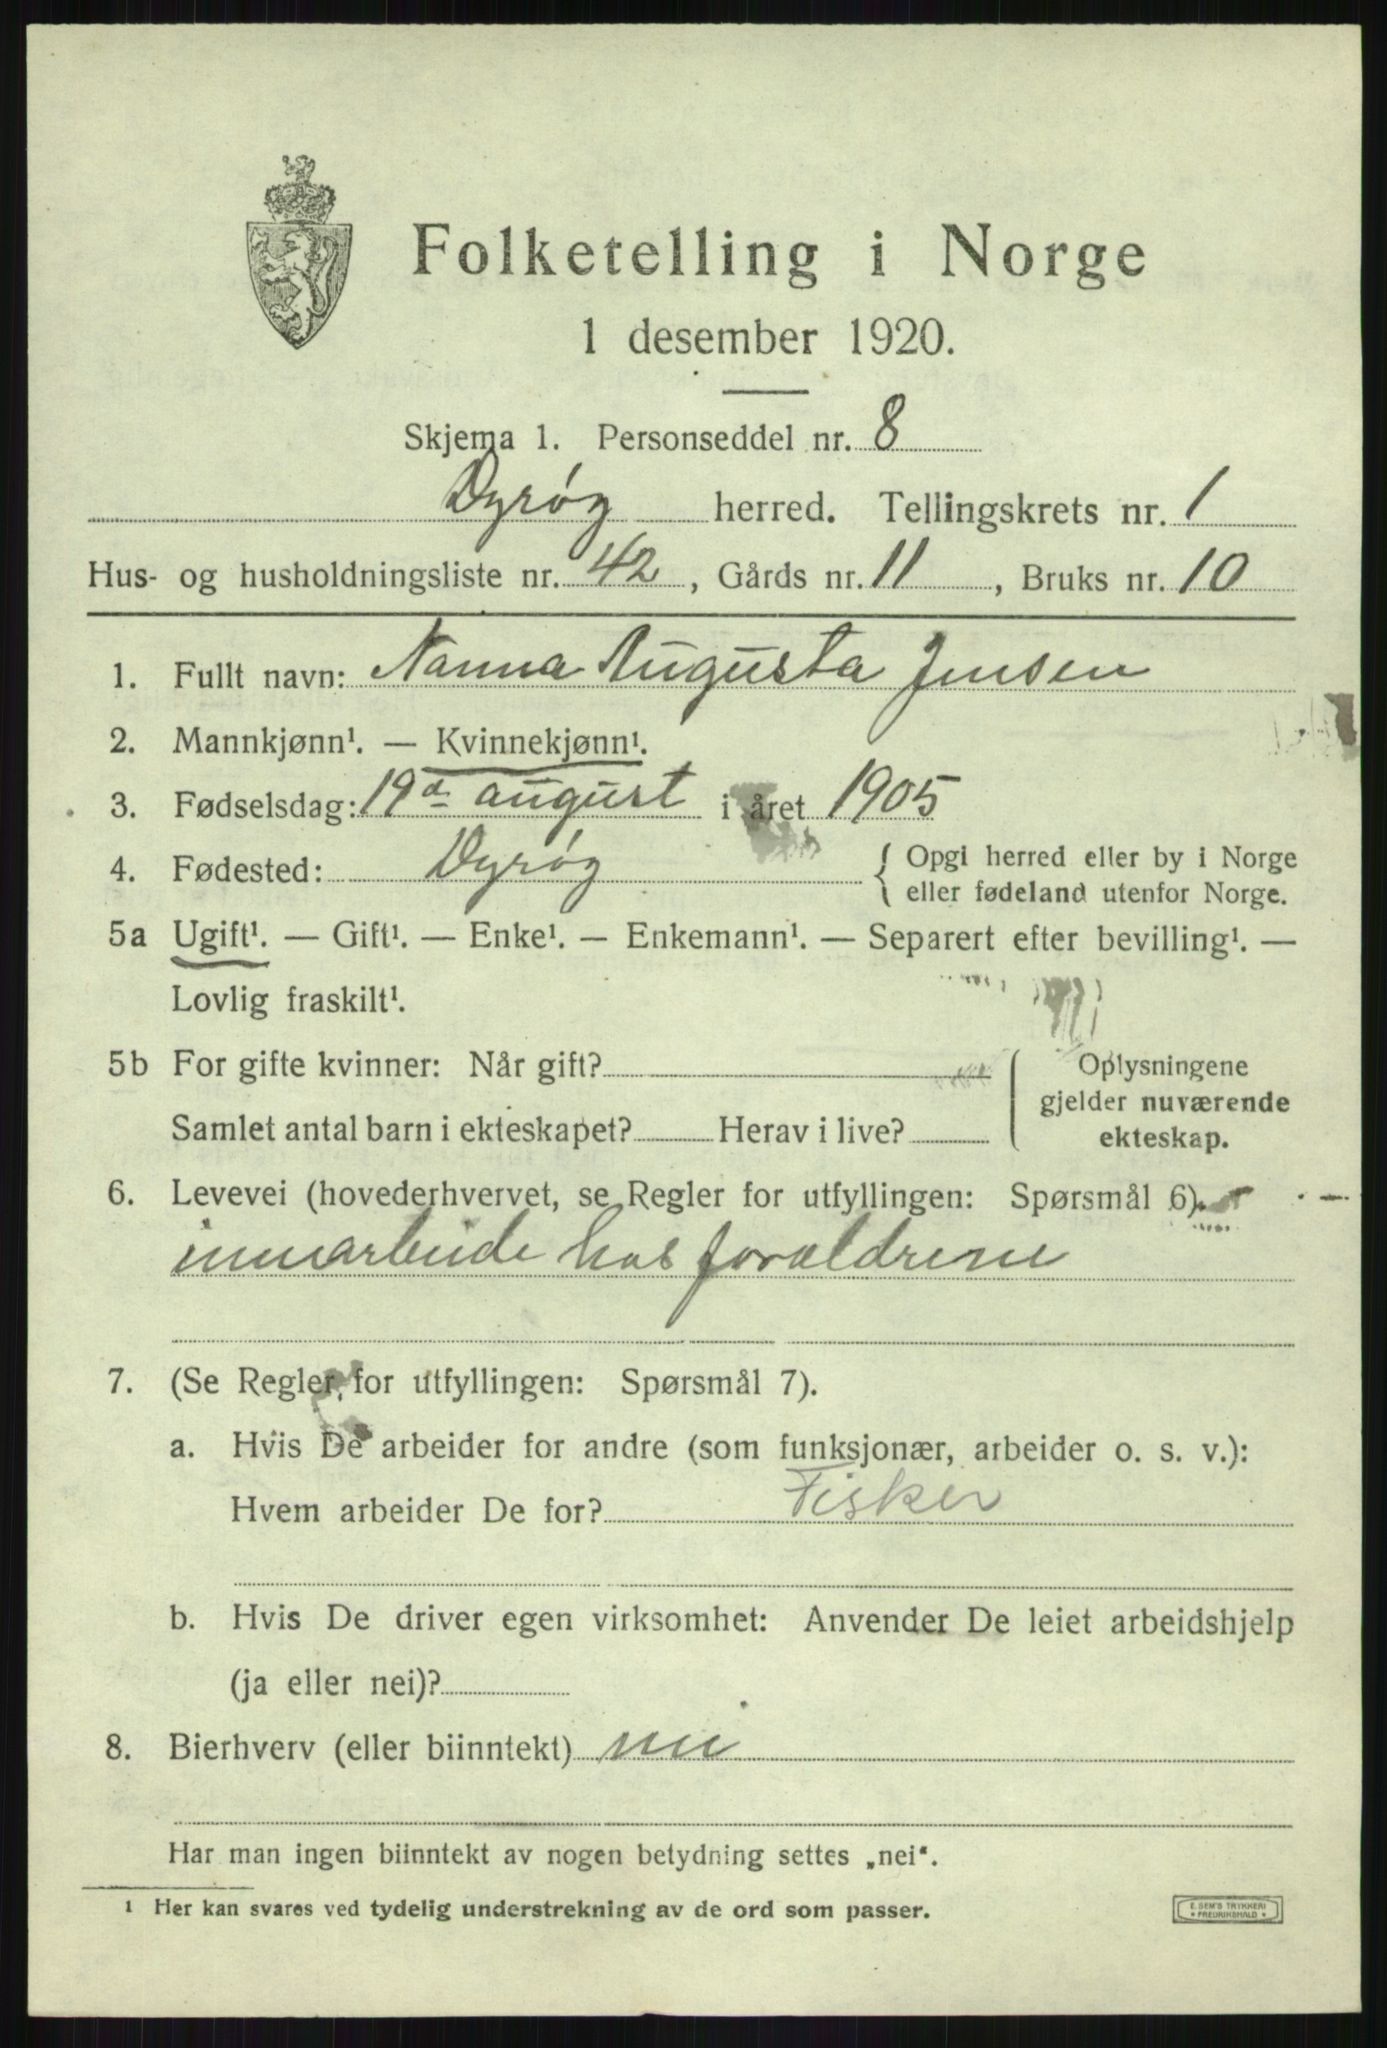 Folketelling i Norge
1 desember 1920.
Skjema 1. Personseddel nr. 8
Dyrøy herred. Tellingskrets nr. 1
Hus- og husholdningsliste nr. 42, Gårds nr. 11, Bruks nr. 10
1. Fullt navn: Nanna Augusta Jensen
2. Mannkjønn¹. — Kvinnekjønn¹.
3. Fødselsdag: 19de august i året 1905
4. Fødested: Dyrøy { Opgi herred eller by i Norge
eller fødeland utenfor Norge.
5a Ugift¹. — Gift¹. — Enke¹. — Enkemann¹. — Separert efter bevilling¹. —
Lovlig fraskilt¹.
5b For gifte kvinner: Når gift? ( Oplysningene
gjelder nuværende
Samlet antal barn i ekteskapet? Herav i live? ekteskap.
6. Levevei (hovederhvervet, se Regler for utfyllingen: Spørsmål 6).
innarbeide hos forældrene
7. (Se Regler for utfyllingen: Spørsmål 7).
a. Hvis De arbeider for andre (som funksjonær, arbeider o. s. v.):
Hvem arbeider De for? Fisker
b. Hvis De driver egen virksomhet: Anvender De leiet arbeidshjelp
(ja eller nei)?
8. Bierhverv (eller biinntekt) nei
Har man ingen biinntekt av nogen betydning settes „nei“.
¹ Her kan svares ved tydelig understrekning av de ord som passer.
E. SEM'S TRYKKERI
* FREDRIKSHALD *